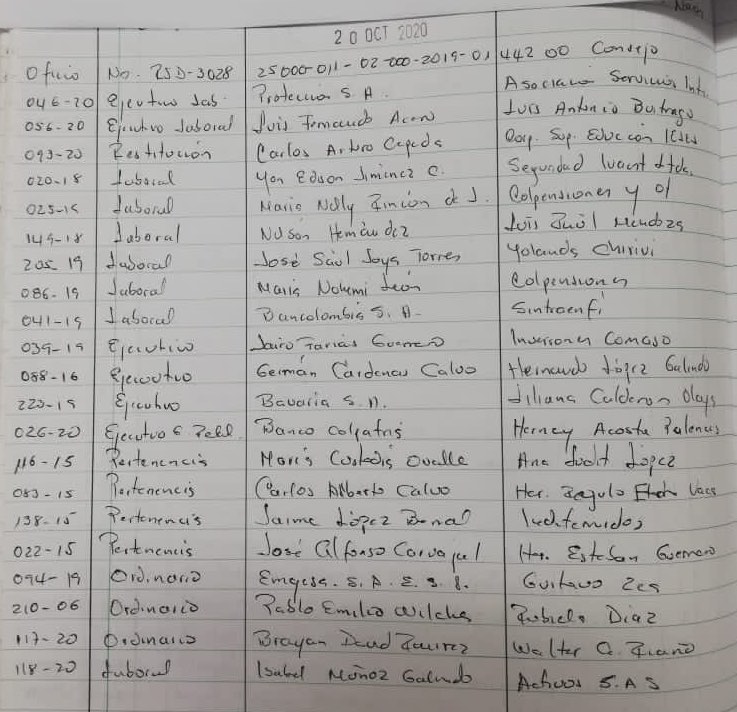 20 OCT 2020
Oficio No. PSD-3028 25000-011-02-000-2019-01442 00 Consejo
046-20 Ejecutivo Lab. Protección S.A. Asociana Servicios Int.
056-20 Ejecutivo Laboral Luis Fernando Luis Antonio Buitrago
093-20 Restitución Carlos Arturo Cepeda Corp. Sup. Educación
020-18 Laboral Yon Edson Jiminez C. Seguridad Ltda.
025-19 Laboral Maria Nelly Rincón de J. Colpensiones y o/
149-18 Laboral Nelson Hernández Luis Raúl Mendoza
205-19 Laboral José Saúl Joya Torres Yolanda Chirivi
086-19 Laboral Maria Nohemi León Colpensiones
041-19 Laboral Bancolombia S.A. Sintraenfi
039-19 Ejecutivo Jairo Farias Guerrero Inversiones Comaso
088-16 Ejecutivo Germán Cardenas Calvo Hernando López Galindo
220-19 Ejecutivo Bavaria S.A. Liliana Calderon Olaya
026-20 Ejecutivo E. Banco Colpatria Herney Acosta Palencia
116-15 Pertenencia Maria Custodia Ovalle Ana Judit López
083-15 Pertenencia Carlos Alberto Calvo Her. Regulo Vaca
138-15 Pertenencia Jaime López Bernal Indtemidos
022-15 Pertenencia José Alfonso Carvajal Her. Esteban Guerrero
094-19 Ordinario Emgesa. S.A. E.S.P. Gustavo Zea
210-06 Ordinario Pablo Emilio Wilches Rubiela Diaz
117-20 Ordinario Brayan David Ramirez Walter A. Riaño
118-20 Laboral Isabel Muñoz Galindo Activos S.A.S